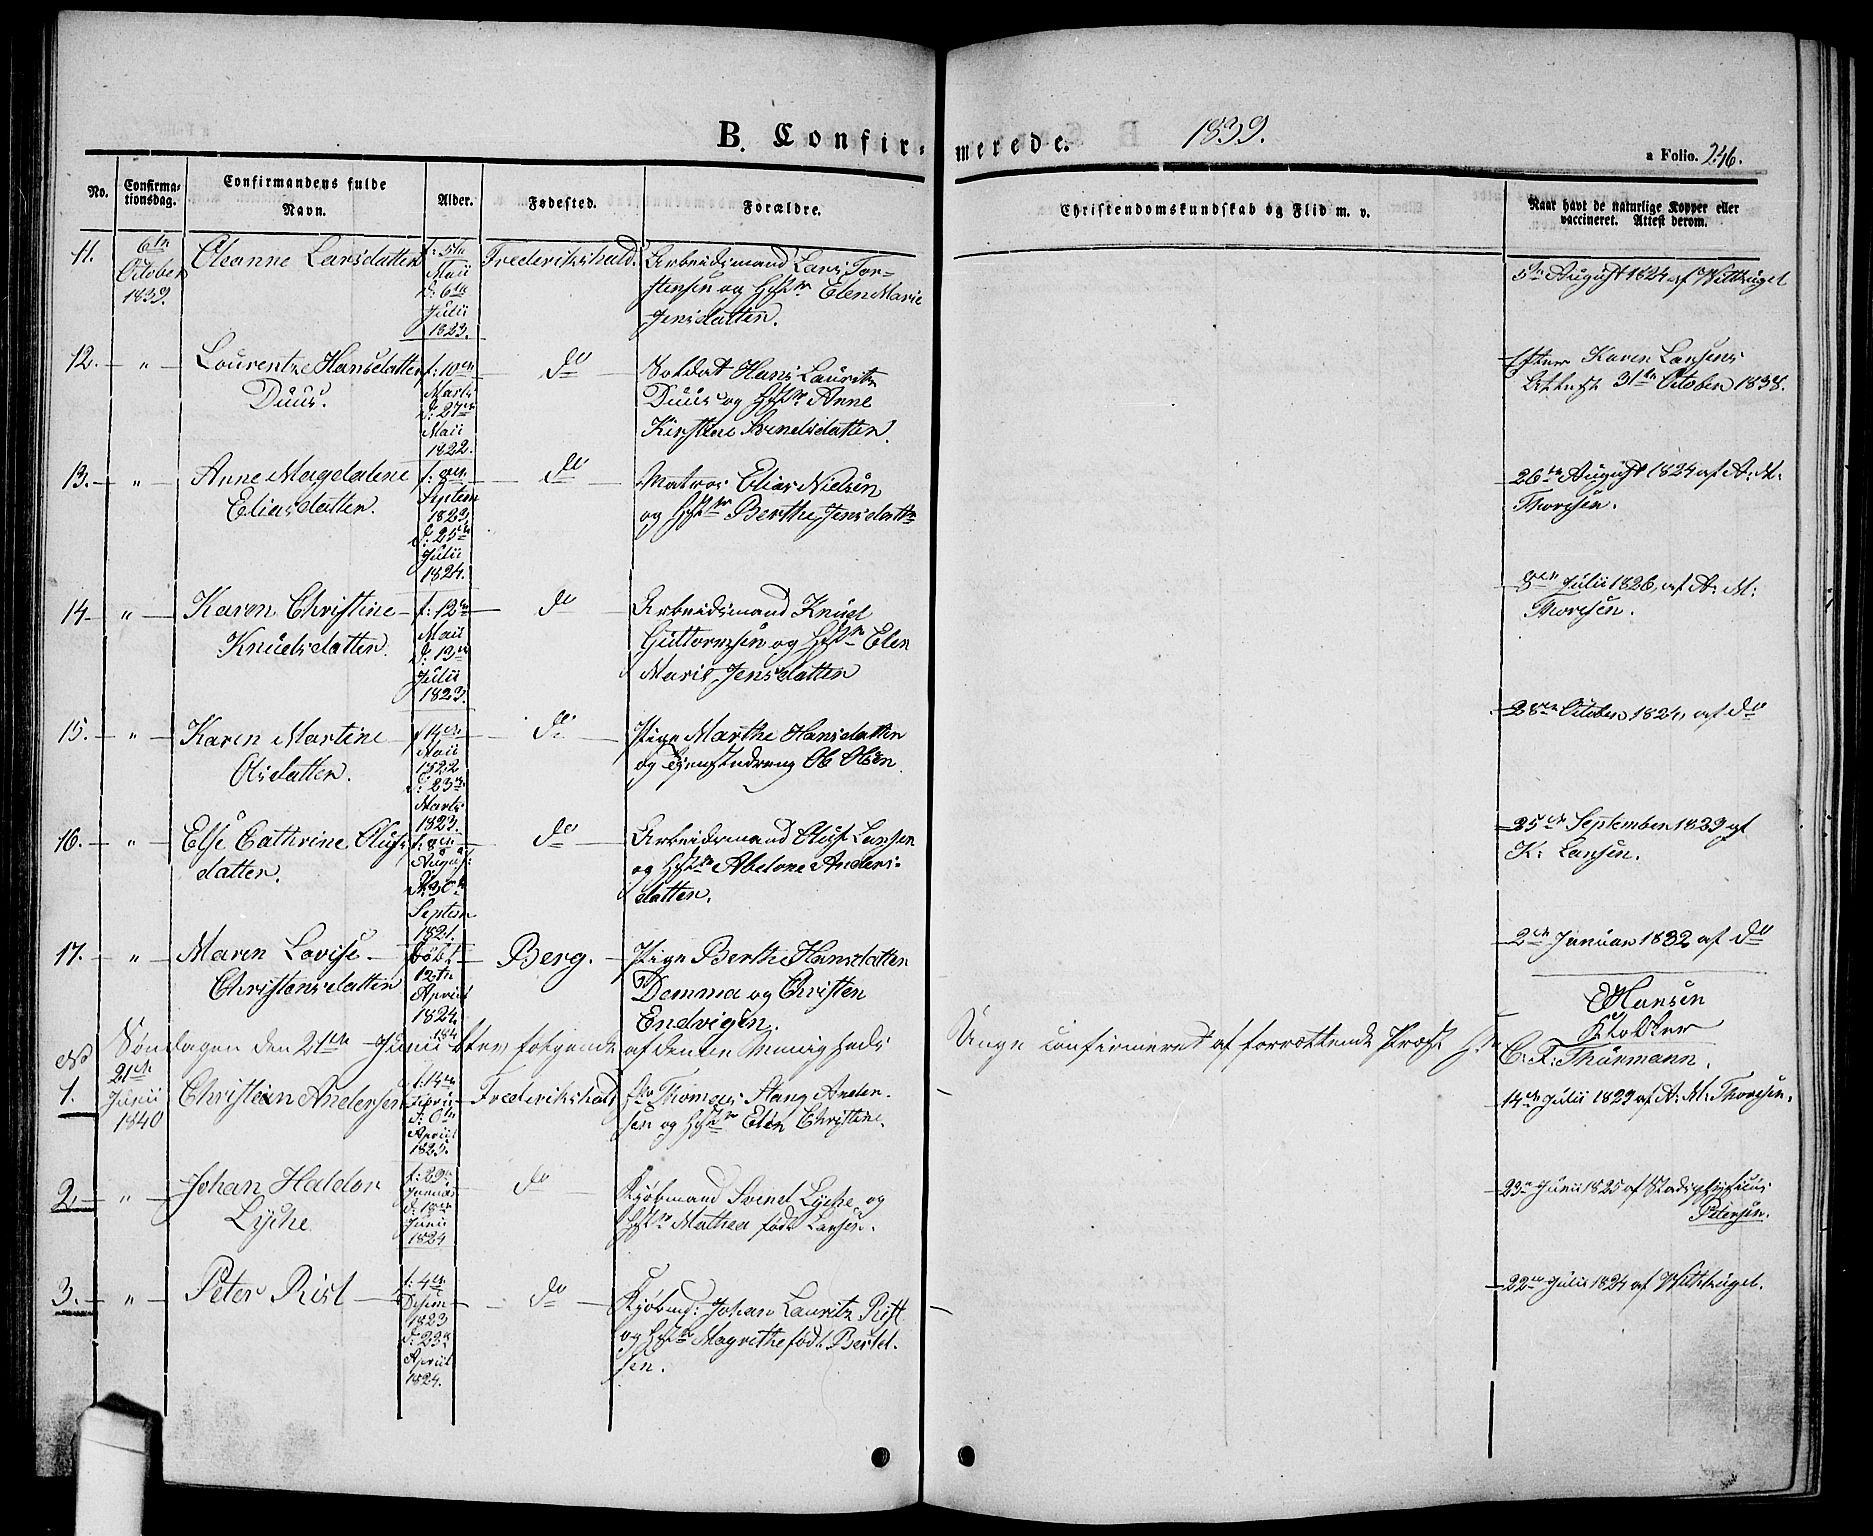 B. Confirmerede. 1839.
a Folio. 246.
No. Confirmationsdag. Confirmandens fulde Navn. Alder. Fødested. Forældre. Christendomskundskab og Flid m. v. Naar havt de naturlige Kopper eller vaccineret. Attest derom.
11. 6te October 1839. Oleanne Larsdatter f: 5te Maii d: 6te Julii 1823. Frederikshald. Arbeidsmand Lars Torstensen og Hstr Elen Marie Jensdatter. 5te August 1824 af Withzugel
12. " Lourentze Hansdatter Duus. f: 10de Marts d: 27de Maii 1822. do Soldat Hans Lauritz Duus og Hstr Anne Kirstine Svendsdatter. Efter Karen Larsens Attest 31te October 1838.
13. " Anne Magdalene Eliasdatter. Septem 1823 d: 25de Julii 1824. do Matros Elias Nielsen og Hstr Berthe Jensdatter 26de August 1824 af A: M: Thoresen.
14. " Karen Christine Knudsdatter. f: 12te Maii d: 13de Julii 1823. do Arbeidsmand Knud Guttormsen og Hstr Elen Marie Jensdatter Julii 1826, af A: M: Thoresen.
15. " Karen Martine Olsdatter. f 14de Maii 1522 d: 23de Marts 1823. do Pige Marthe Hansdatter og Tjenstedreng Ole Olsen. 28de October 1824, af do
16. " Else Cathrine Olufsdatter. August Septem 1821. do Arbeidsmand Oluf Larsen og Hstr Abelone Andersdatter. 25de September 1829 af K: Larsen.
17. " Maren Lovise Christensdatter døbt 12te April 1824. Berg. Pige Berthe Hansdatter Demma og Christen Endvigsen. 2den Januar 1832 af do
EHansen
Klokker
Søndagen den 21de Junii blev følgende af denne Menigheds Unge confirmeret af forrettende Præst Hr. C. F. Thurmann.
No 1. 21de Junii 1840 Christian Andersen f: 14de April 1825. Frederikshald Thomas Stang Andersen og Hstr Elen Christine. 14de Julii 1829 af A: M: Thoresen.
2. " Johan Haldor Lyche f: 29de Januar Junii 1824 do Kjøbmand Svend Lyche og Hstr Mathea født Larsen. 23de Junii 1825 af Stadsphysicus Petersen.
3. " Peter Rist f: 4de Desem 1823 d: 22de April 1824. do Kjøbmd: Johan Lauritz Rist og Hstr Magrethe født Bertelsen. 22de Julii 1824 af Withzugel.